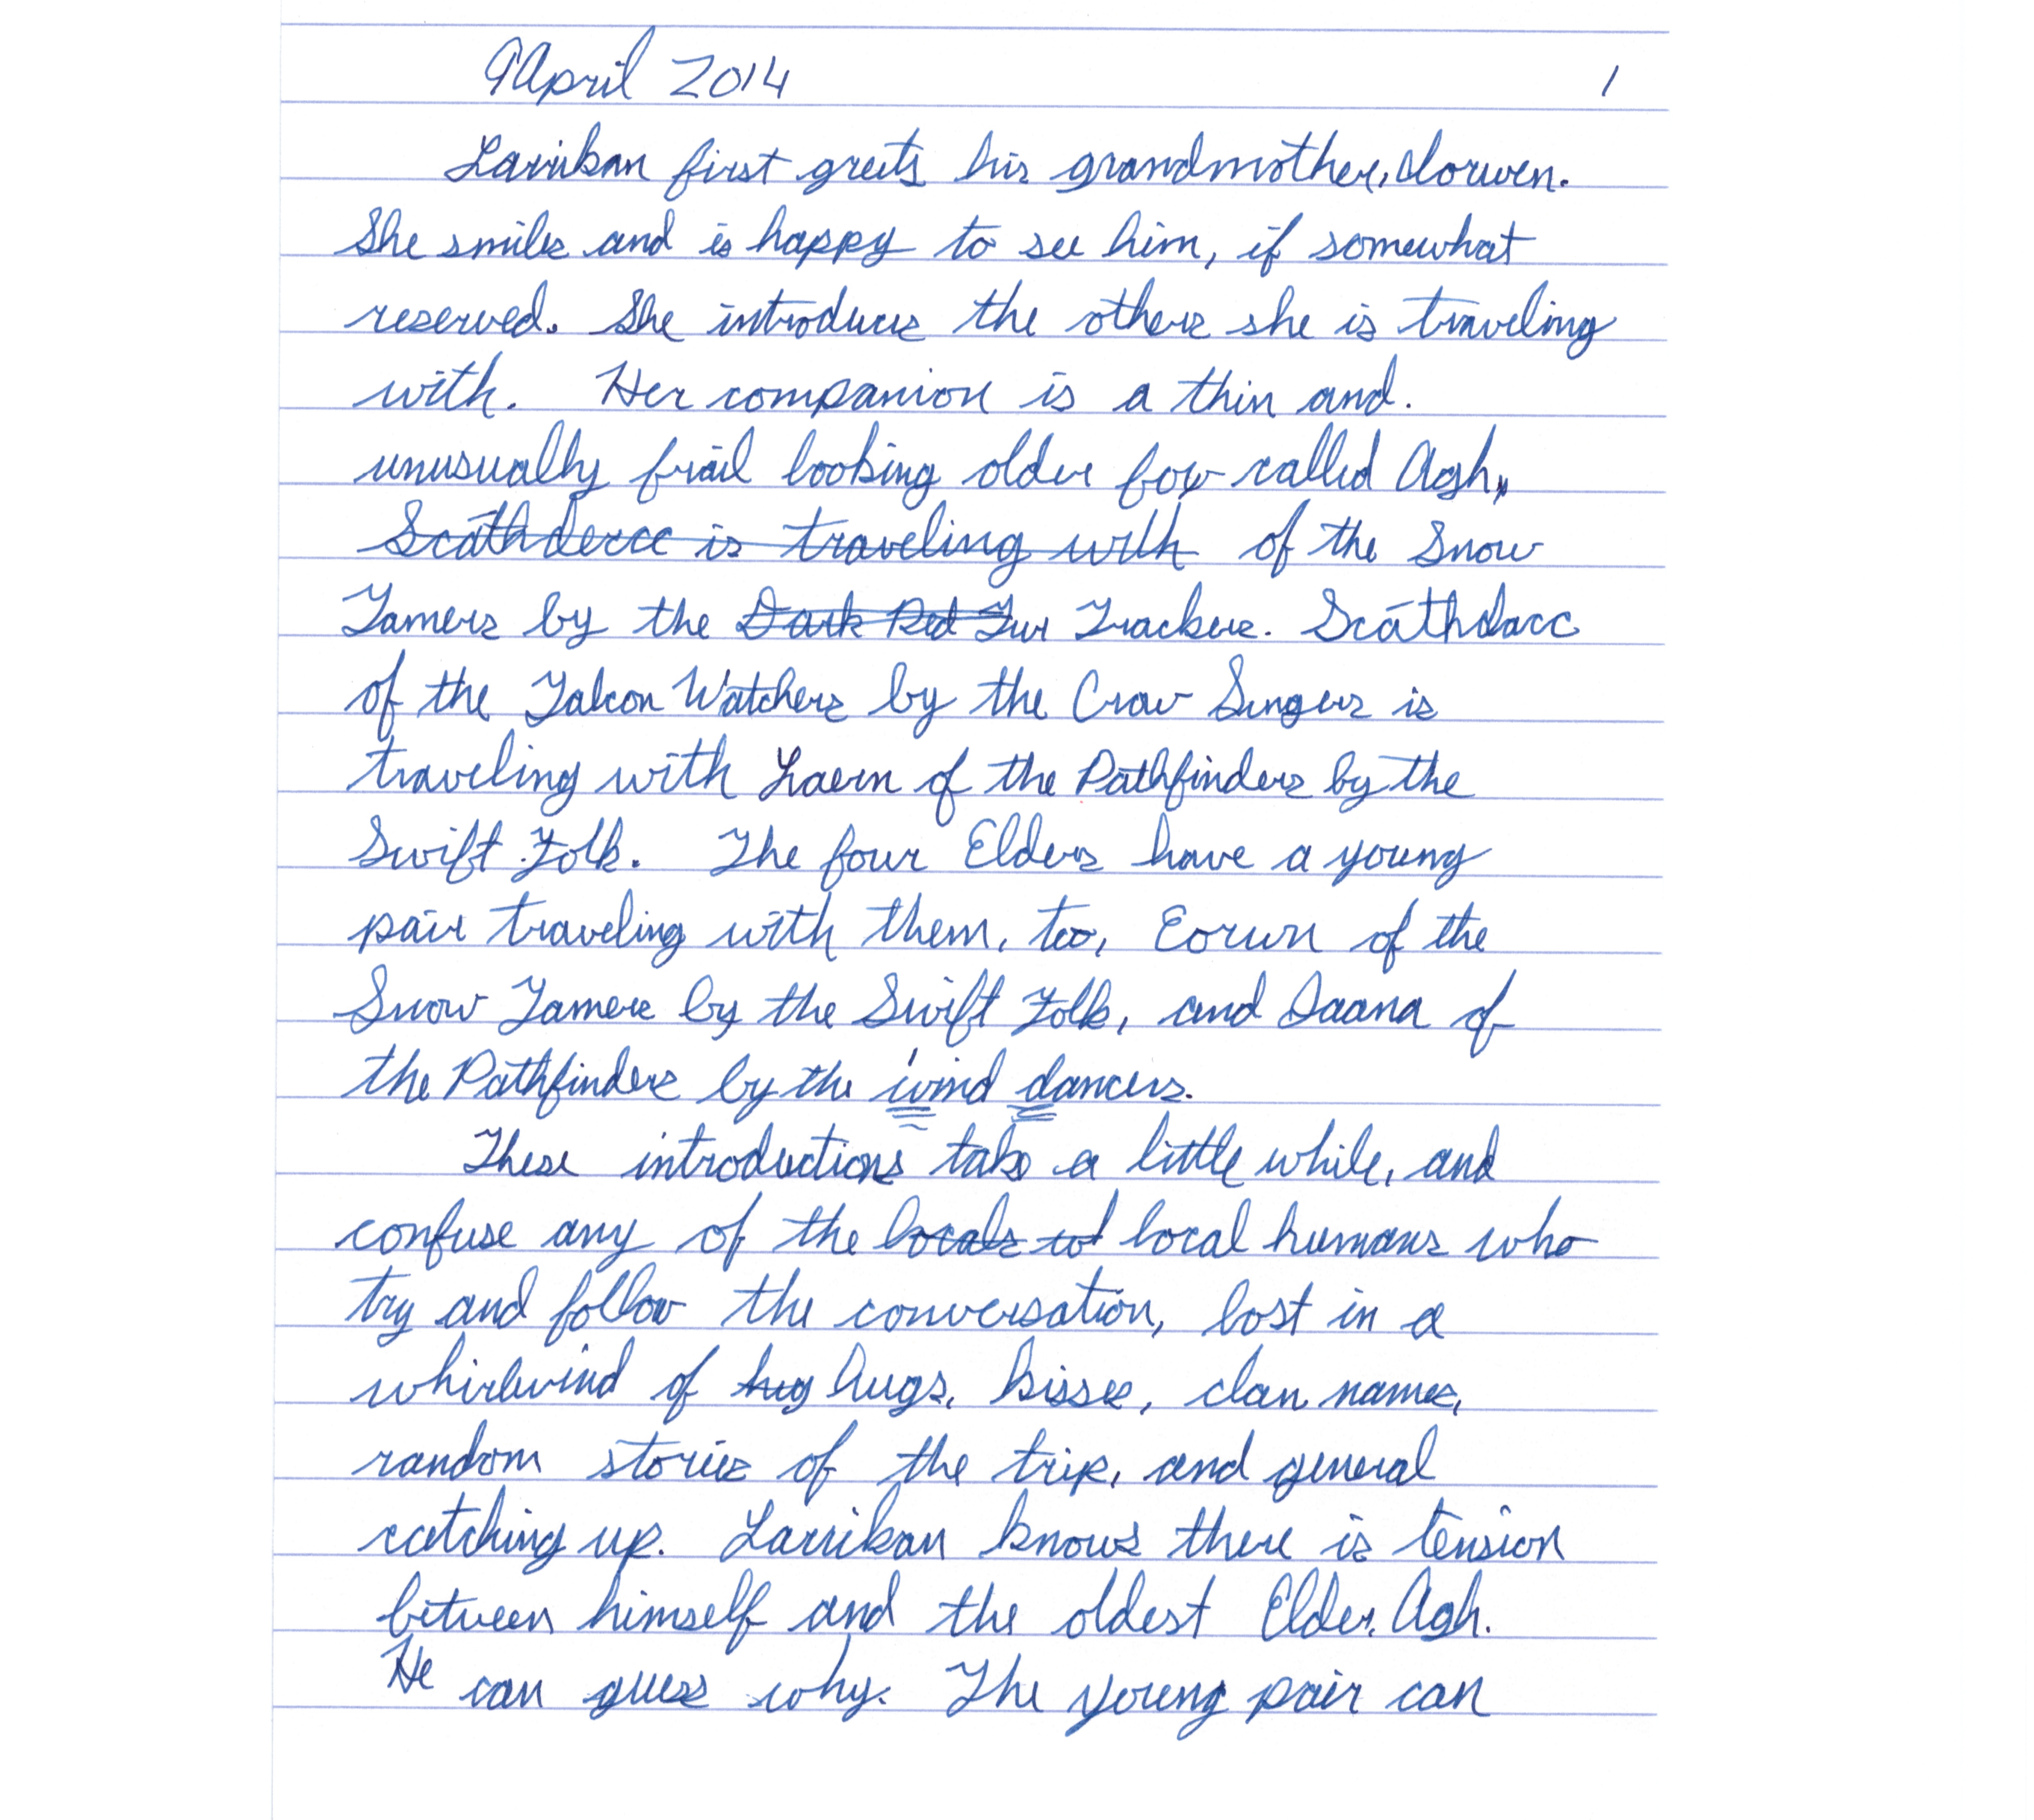 9 April 2014 1
Larrikan first greets his grandmother, Norwen.
She smiles and is happy to see him, if somewhat
reserved. She introduces the others she is traveling
with. Her companion is a thin and.
unusually frail looking older fox called Aosh,
Scáthdercc is traveling with of the Snow
Tamers by the Dark Red Fur Trackers. Scáthdacc
of the Falcon Watchers by the Craw Singers is
traveling with Laern of the Pathfinders by the
Swift Folk. The four Elders have a young
pair traveling with them, too, Eorwn of the
Snow Tamers by the Swift Folk, and Daana of
the Pathfinders by the wind dancers.
These introductions take a little while, and
confuse any of the locals wh local humans who
try and follow the conversation, lost in a
whirlwind of hug hugs, kisses, clan names,
random stories of the trip, and general
catching up. Larrikan knows there is tension
between himself and the oldest Elder, Aosh.
He can guess why. The young pair can